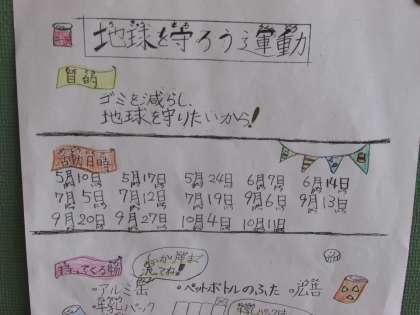 地球を守ろう運動
目的
ゴミを減らし、
地球を守りたいから!
活動日時
5月10日 5月17日 5月24日 6月7日 6月14日
7月5日 7月12日 7月19日 9月6日 9月13日
9月20日 9月27日 10月4日 10月11日
持ってくる物
・アルミ缶 ・ペットボトルのふた